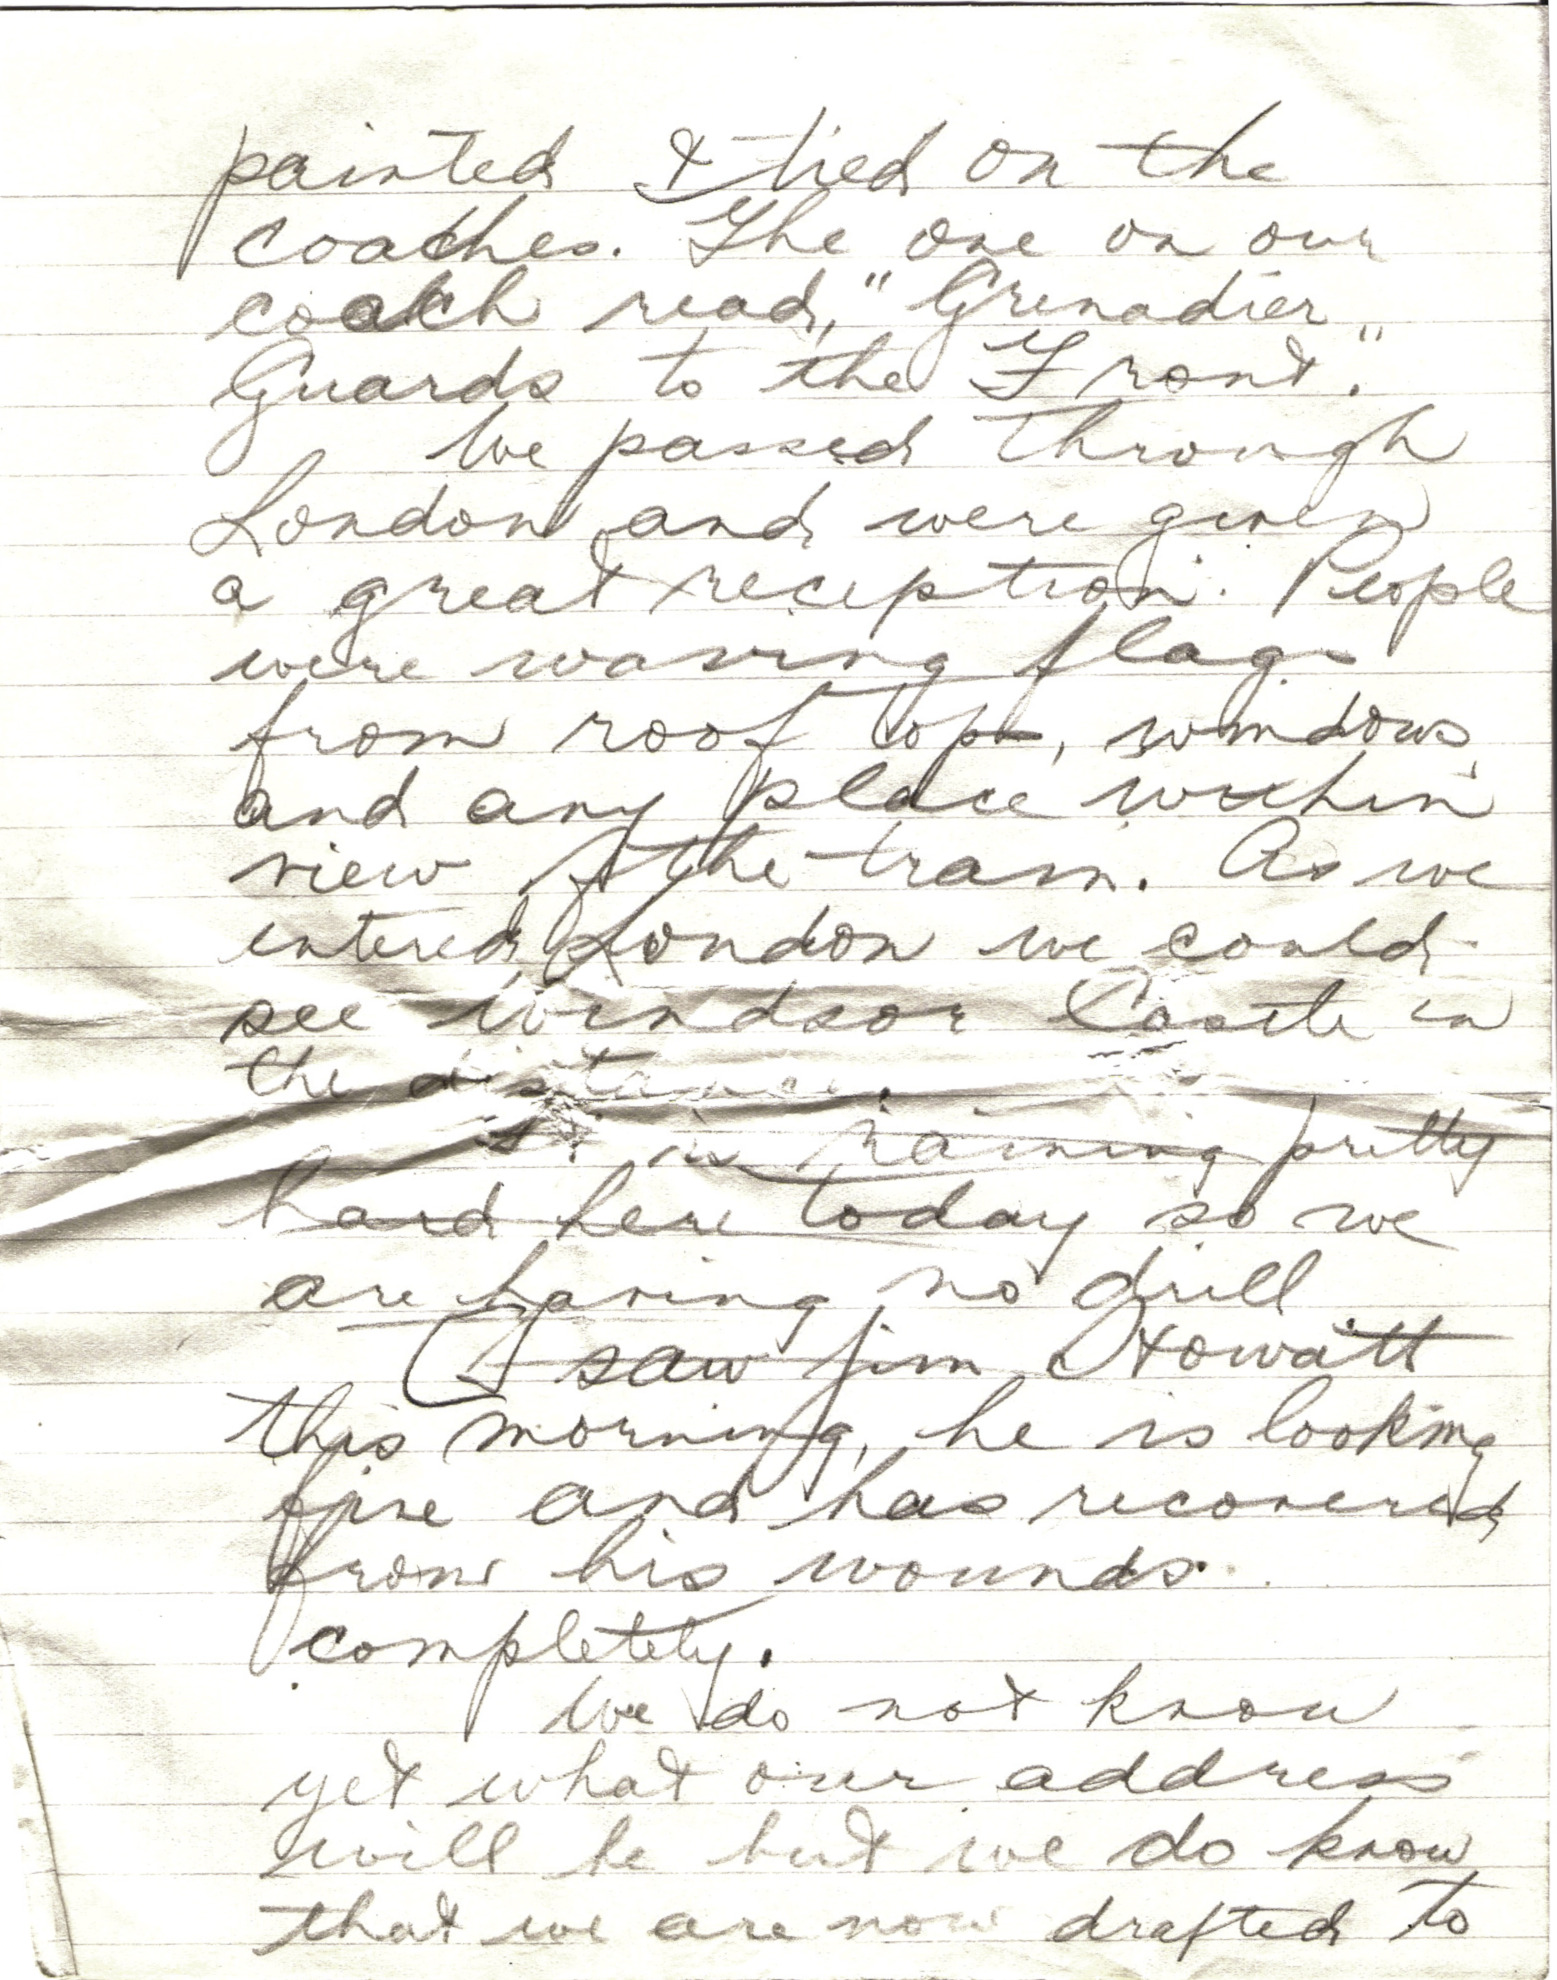 painted & tied on the
coaches. The one on our
coach read, "Grenadier
Guards to the Front."
We passed through
London and were given
a great reception. People
were waving flags
from roof tops, windows,
and any place within
view of the train. As we
entered London we could
see Windsor Castle in
the distance.
It is raining pretty
hard here today so we
are having no drill
I saw Jim Howatt
this morning, he is looking
fine and has recovered
from his wounds.
completely.
We do not know
yet what our address
will be but we do know
that we are now drafted to